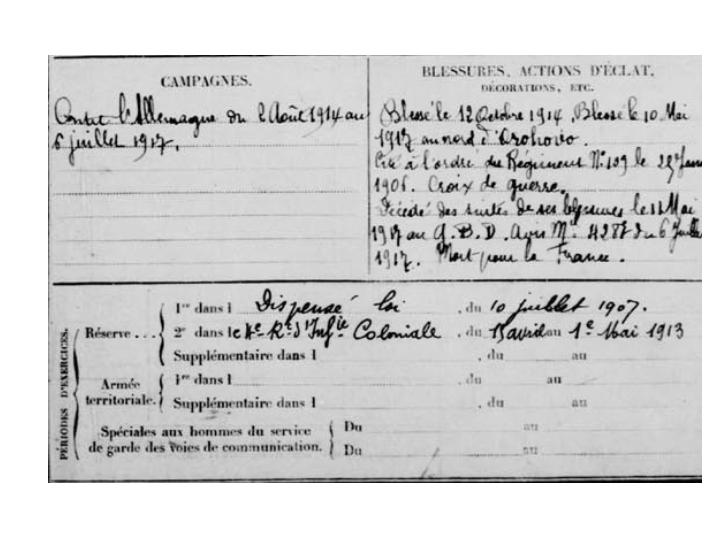 CAMPAGNES.
Contre l'Allemagne du 2 Août 1914 au
6 juillet 1917.
BLESSURES, ACTIONS D'ÉCLAT,
DÉCORATIONS, ETC.
Blessé le 12 Octobre 1914, Blessé le 10 Mai
1917 au nord d'Orohovo.
Cité à l'ordre du Régiment N° 109 le 29 Janv
1906. Croix de guerre.
Décédé des suites de ses blessures le 11 Mai
1917 au G.B.D. Avis Mel 4287 du 6 Juille
1917. Mort pour la France.
PÉRIODES D'EXERCICES.
Réserve . . .
1re dans l Dispensé loi , du 10 juillet 1907.
2e dans le 4e Rt d'Infie Coloniale , du 15 avril au 1e Mai 1913
Supplémentaire dans l , du au
Armée
territoriale.
1re dans l , du au
Supplémentaire dans l , du au
Spéciales aux hommes du service
de garde des voies de communication.
Du au
Du au